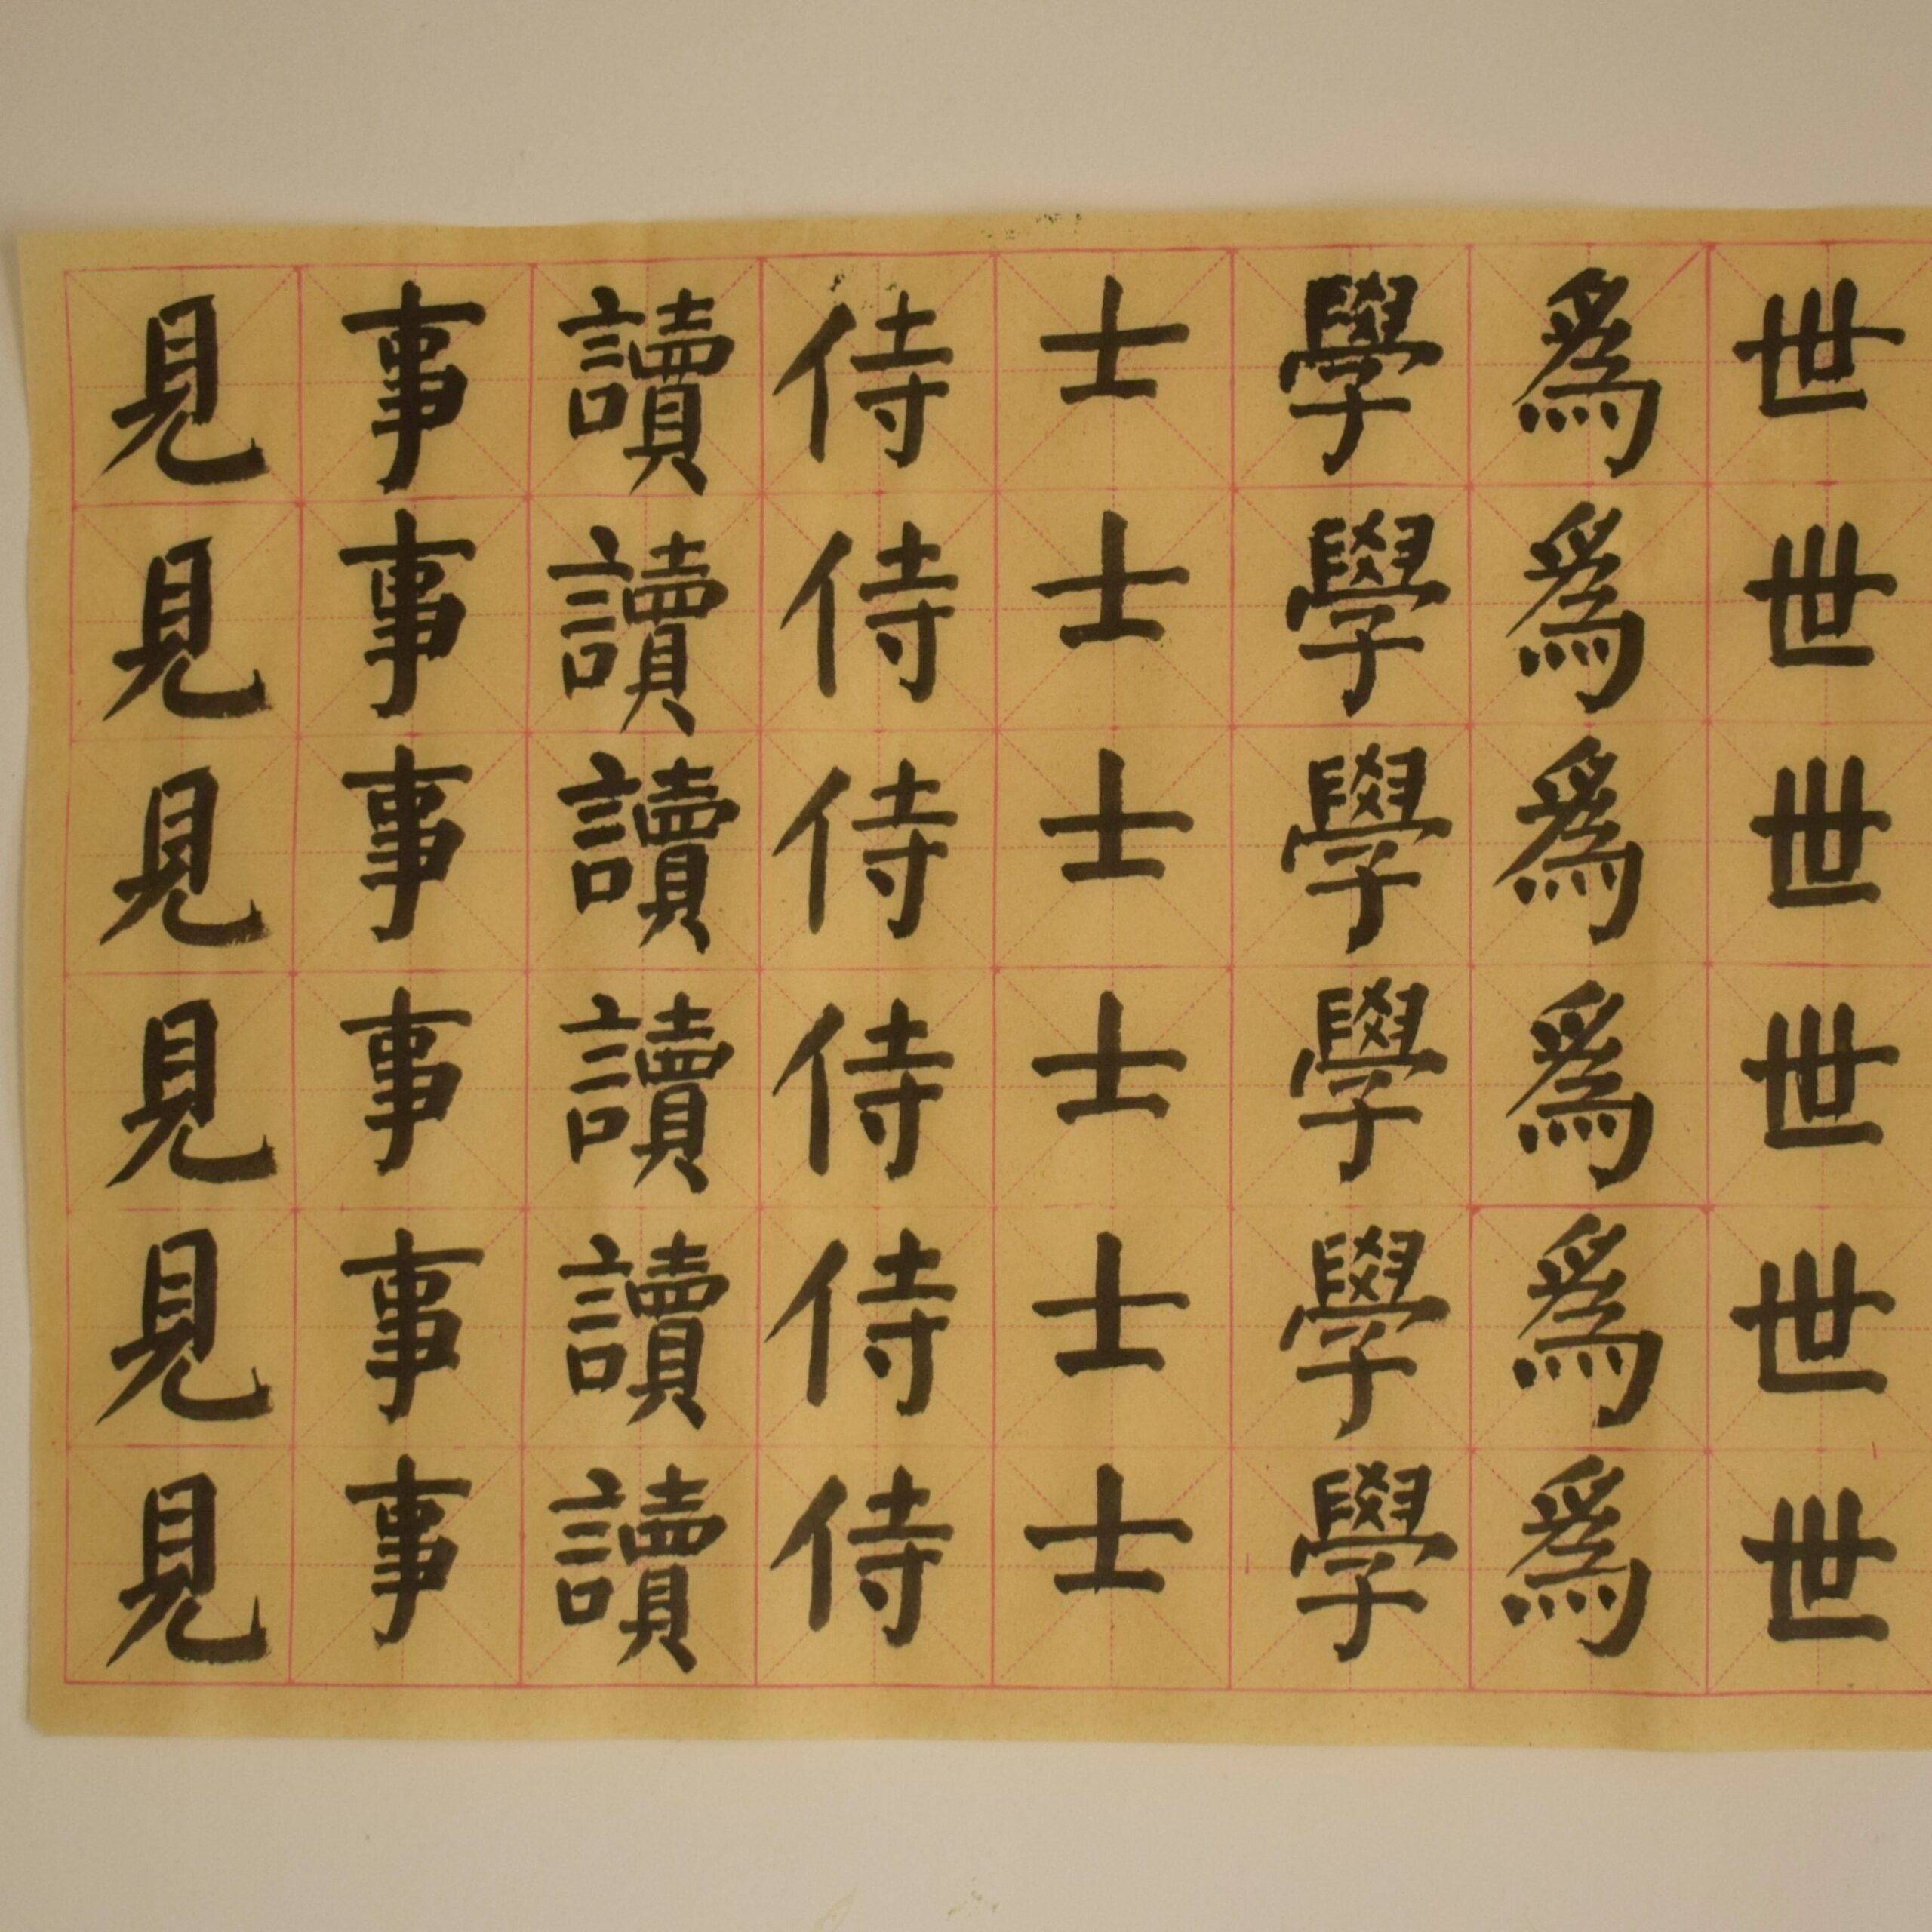 世世世世世世
爲爲爲爲爲爲
學學學學學學
士士士士士士
侍侍侍侍侍侍
讀讀讀讀讀讀
事事事事事事
見見見見見見